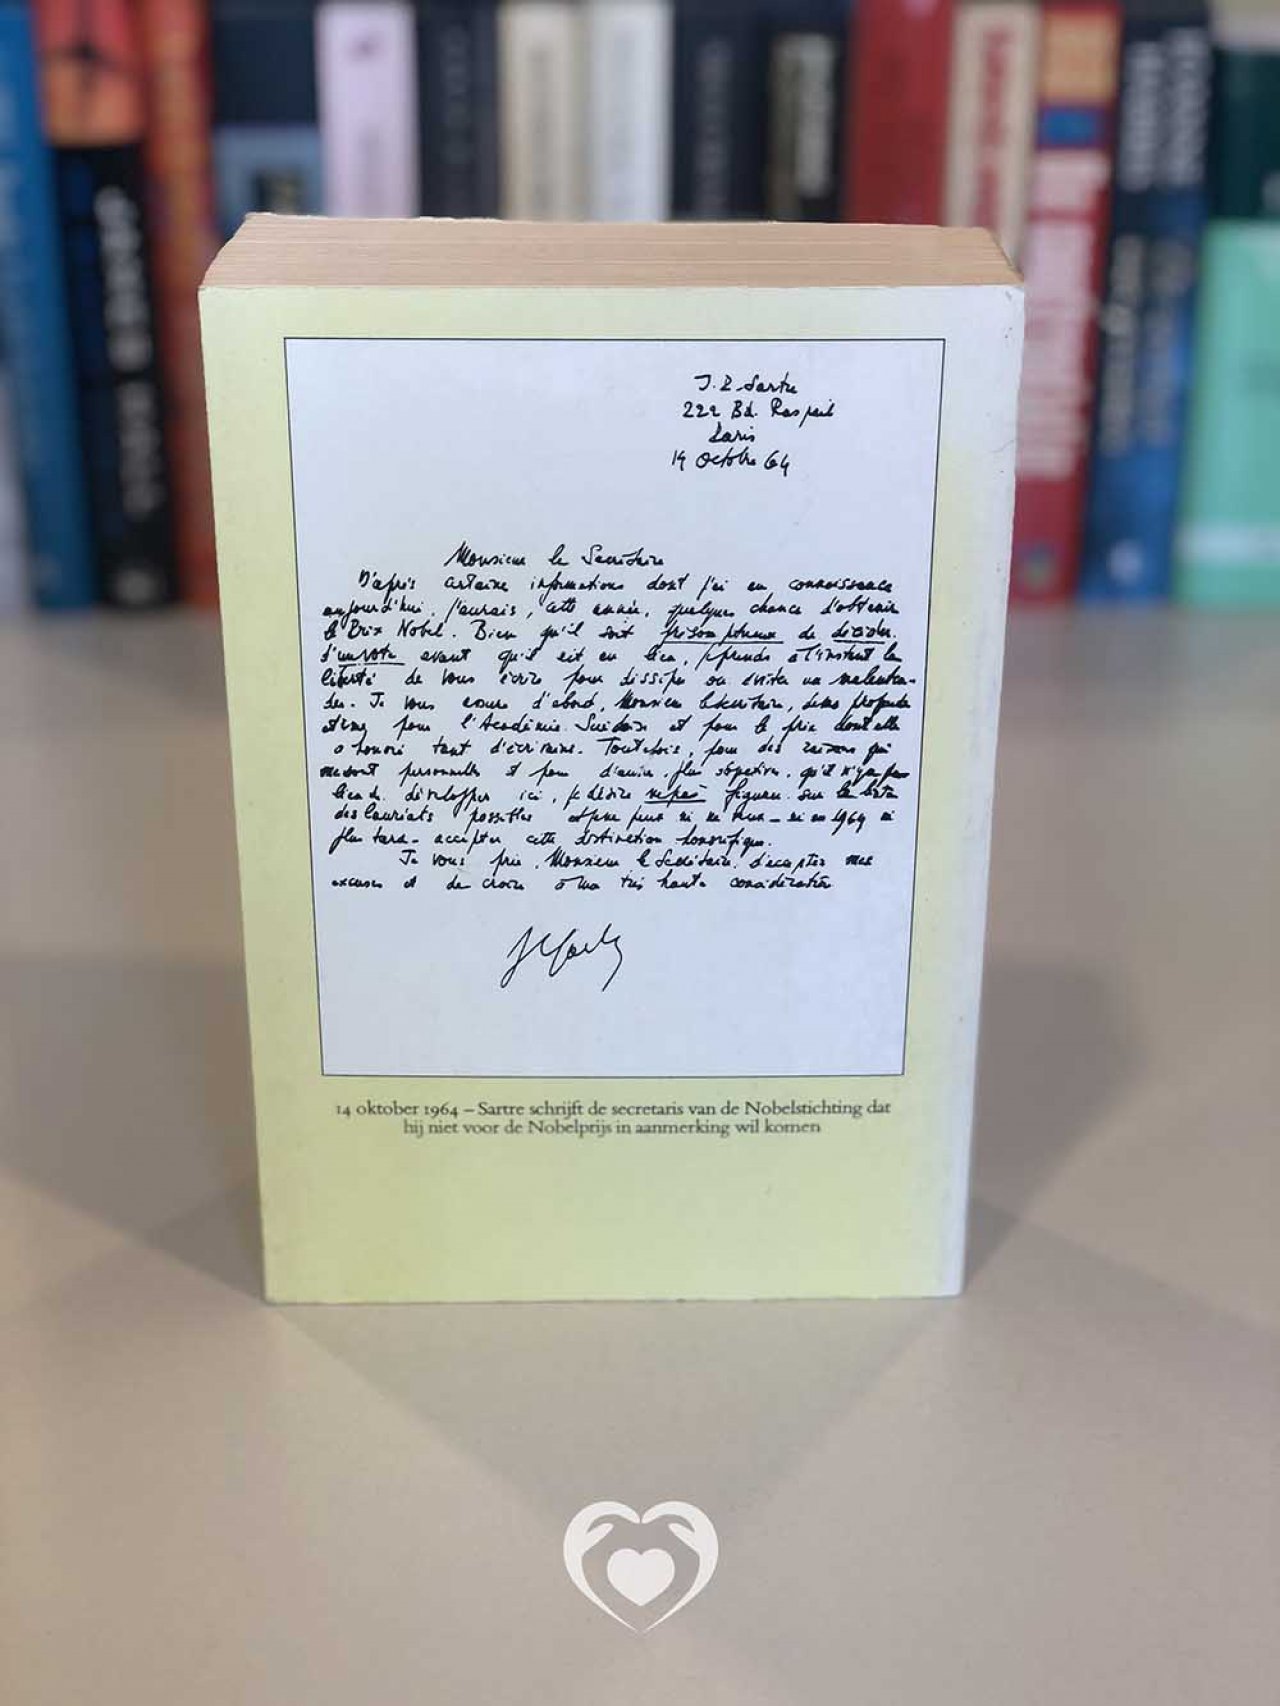 J. P. Sartre
222 Bd. Raspail
Paris
14 octobre 64
Monsieur le Secrétaire
D'après certaines informations dont j'ai eu connaissance
aujourd'hui, j'aurais, cette année, quelques chance d'obtenir
le Prix Nobel. Bien qu'il soit présomptueux de décider
d'un vote avant qu'il ait eu lieu, je prends à l'instant la
liberté de vous écrire pour dissiper ou éviter un malenten-
du. Je vous assure d'abord, Monsieur le Secrétaire, de ma profonde
estime pour l'Académie Suédoise et pour le prix dont elle
a honoré tant d'écrivains. Toutefois, pour des raisons qui
me sont personnelles et pour d'autres, plus objectives, qu'il n'y a pas
lieu de développer ici, je désire ne pas figurer sur la liste
des lauréats possibles et je ne peux ni ne veux – ni en 1964 ni
plus tard – accepter cette distinction honorifique.
Je vous prie, Monsieur le Secrétaire, d'accepter mes
excuses et de croire à ma très haute considération
14 oktober 1964 – Sartre schrijft de secretaris van de Nobelstichting dat
hij niet voor de Nobelprijs in aanmerking wil komen